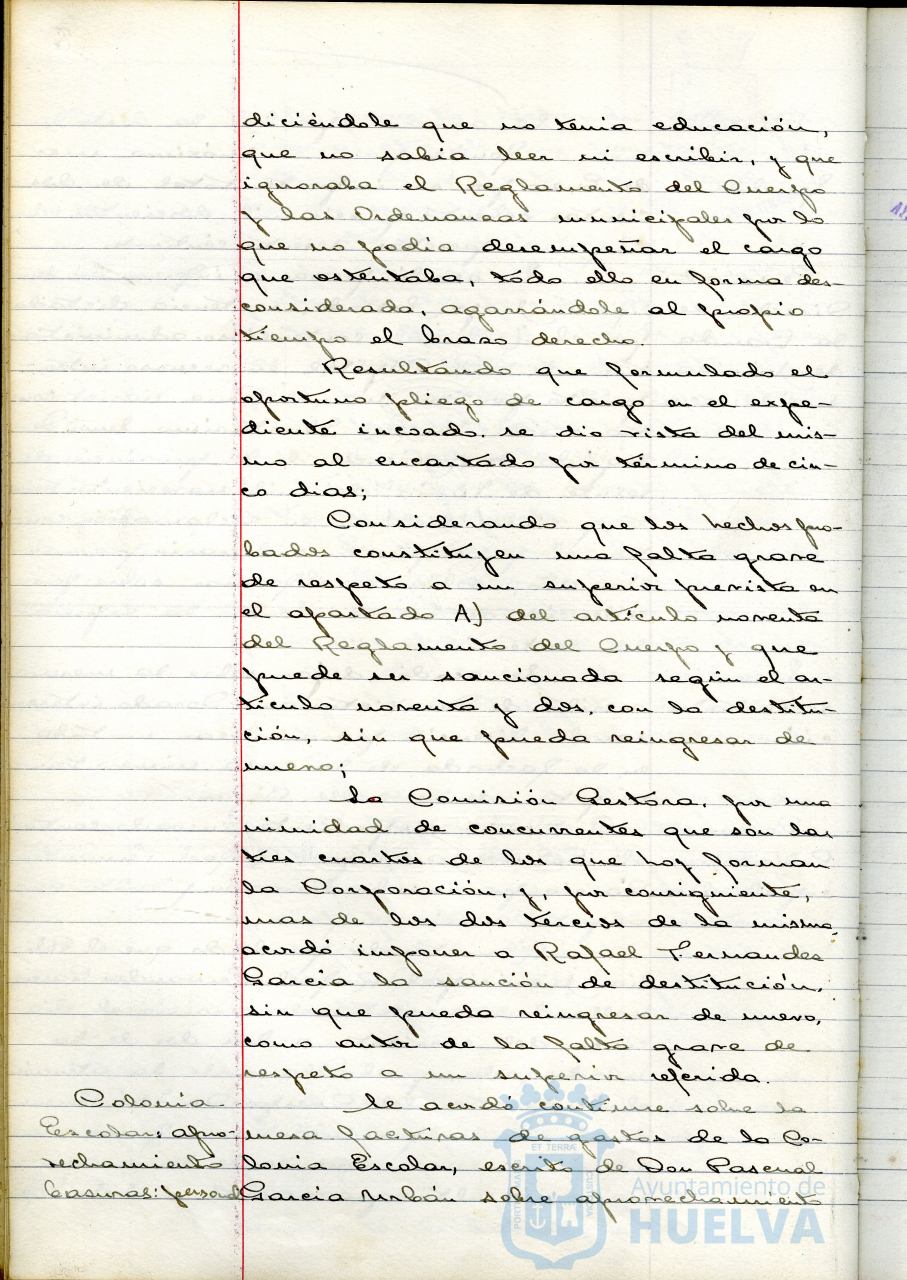 diciéndole que no tenia educación,
que no sabia leer ni escribir, y que
ignoraba el Reglamento del Cuerpo
y las Ordenanzas municipales por lo
que no podia desempeñar el cargo
que ostentaba, todo ello en forma des-
considerada, agarrándole al propio
tiempo el brazo derecho.
Resultando que formulado el
oportuno pliego de cargo en el expe-
diente incoado. se dio vista del mis-
mo al encartado por término de cin-
co dias;
Considerando que los hechos pro-
bados constituyen una falta grave
de respeto a un superior prevista en
el apartado A) del artículo noventa
del Reglamento del Cuerpo y que
puede ser sancionada según el ar-
tículo noventa y dos. con la destitu-
ción, sin que pueda reingresar de
nuevo;
La Comisión Gestora, por una
nimidad de concurrentes que son las
tres cuartos de los que hoy forman
la Corporación, y, por consiguiente,
mas de los dos tercios de la misma,
acordó imponer a Rafael Fernandez
Garcia la sanción de destitución,
sin que pueda reingresar de nuevo,
como autor de la falta grave de
respeto a un superior referida.
Colonia
Escolar: apro-
vechamiento
basuras: personal
Se acordó continue sobre la
mesa facturas de gastos de la Co-
lonia Escolar, escrito de Don Pascual
Garcia Urbán sobre aprovechamiento
Ayuntamiento de
HUELVA